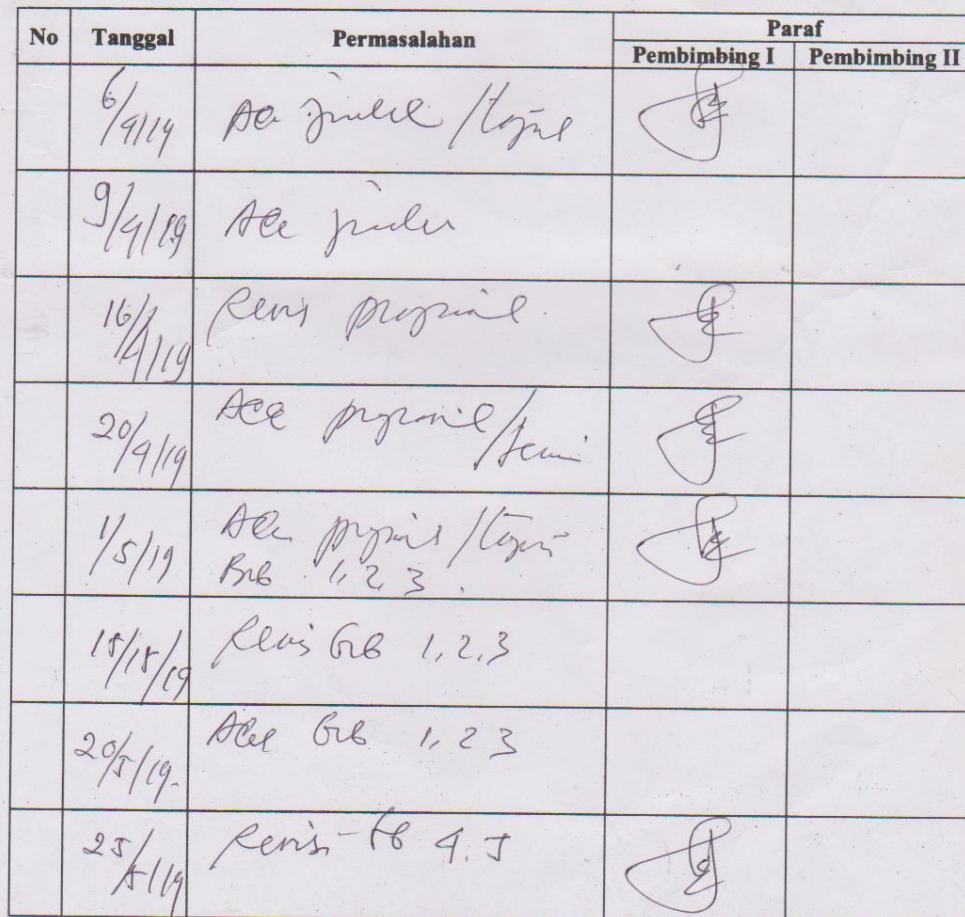 No Tanggal Permasalahan Paraf
Pembimbing I Pembimbing II
6/4/19 Acc
9/4/19 Acc
16/4/19 Revisi proposal
20/4/19 Acc proposal/
1/5/19 Acc proposal/
Bab 1, 2, 3.
15/5/19 Revisi Bab 1, 2, 3
20/5/19. Acc Bab 1, 2 3
25/5/19 Revisi 4. 5